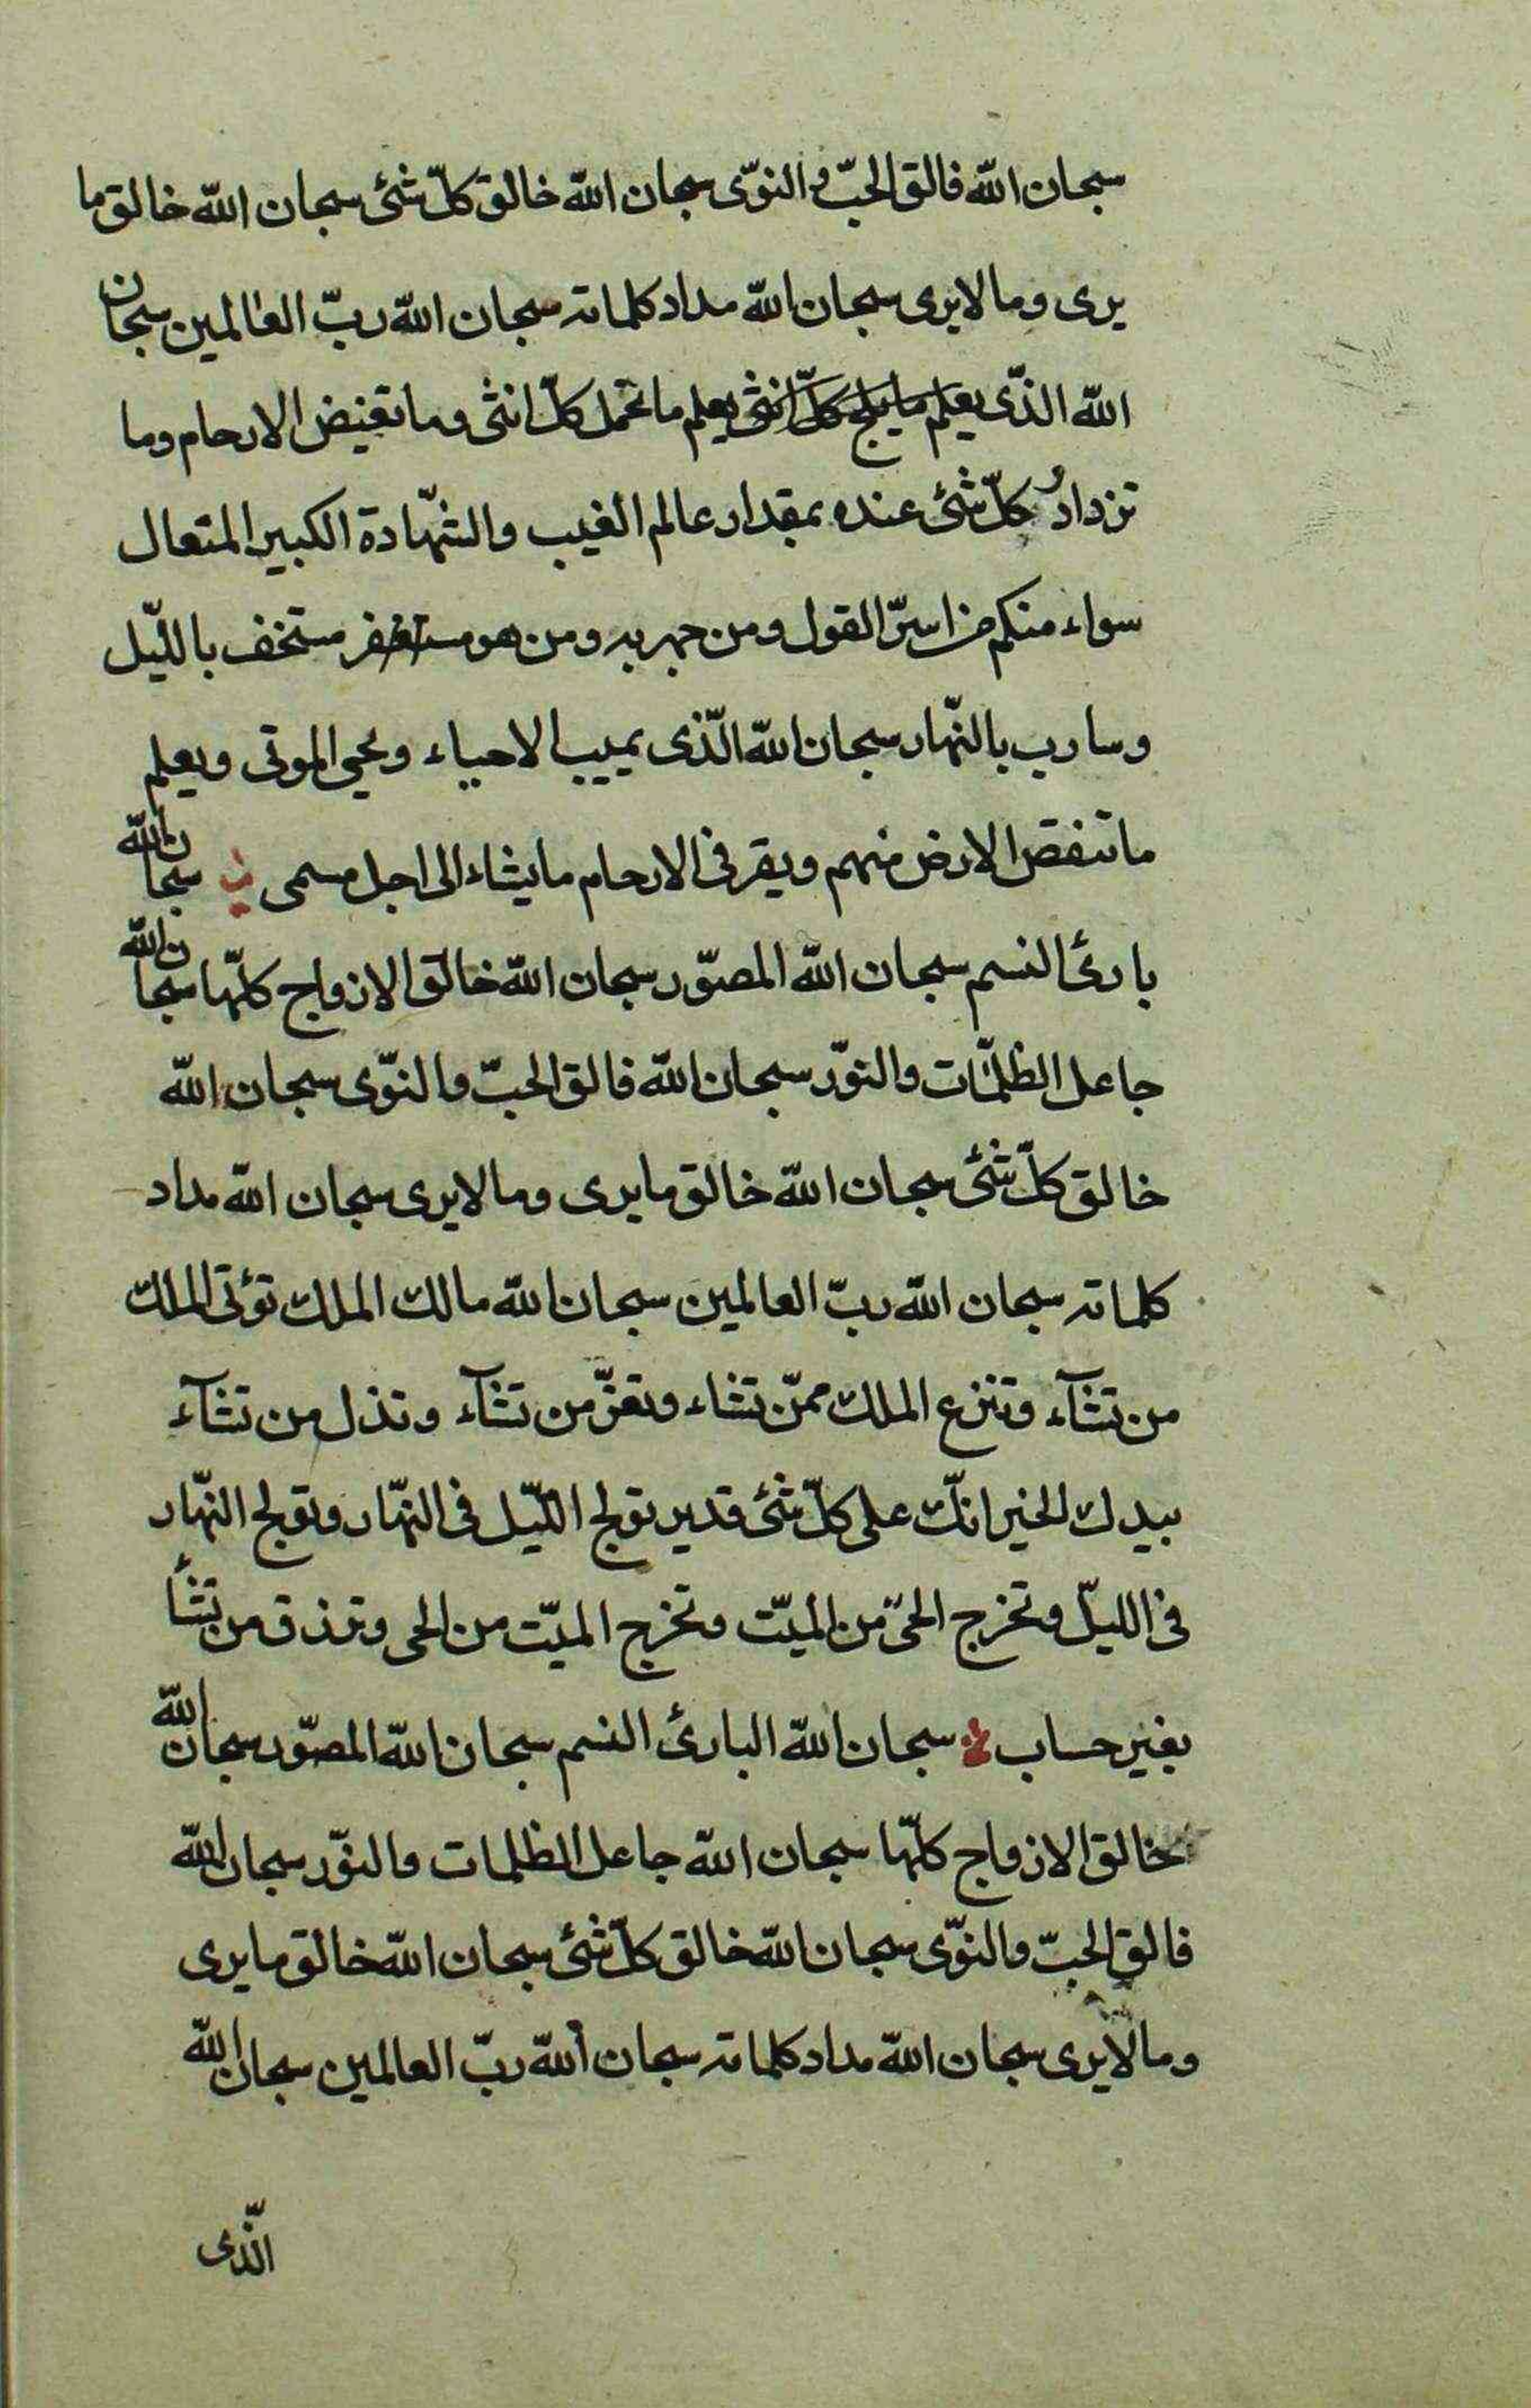 سبحان الله فالق الحبّ و النوّى سبحان الله خالق كلّ شئ سبحان الله خالق ما
يرى وما لا يرى سبحان الله مداد كلماته سبحان الله ربّ العالمين سبحان
الله الذّى يعلم ما يلج كلّ انثى يعلم ما تحمل كلّ انثى وما تغيض الارحام وما
تزدادُ كلّ شئ عنده بمقدار عالم الغيب والشّهادة الكبير المتعال
سواء منكم من اسرّ القول ومن جهر به ومن هو مستغفر مستخف بالليّل
وسارب بالنّهار سبحان الله الّذى يميت الاحياء ويحيى الموتى ويعلم
ما تنقص الارض منهم ويقر فى الارحام ما يشاء الى اجل مسمى سبحان الله
بارئ النسم سبحان الله المصوّر سبحان الله خالق الازواج كلّها سبحان الله
جاعل الظلمّات والنوّر سبحان الله فالق الحبّ والنوّى سبحان الله
خالق كلّ شئ سبحان الله خالق ما يرى وما لا يرى سبحان الله مداد
كلماته سبحان الله ربّ العالمين سبحان الله مالك الملك تؤتى الملك
من تشآء وتنزع الملك ممّن تشاء وتعزّ من تشآء وتذل من تشآء
بيدك الخير انّك على كلّ شئ قدير تولج اللّيل فى النّهار وتولج النّهار
فى الليّل وتخرج الحىّ من الميّت وتخرج الميّت من الحى وترزق من تشأ
بغير حساب سبحان الله البارئ النسم سبحان الله المصوّر سبحان الله
خالق الازواج كلّها سبحان الله جاعل الظلمات والنوّر سبحان الله
فالق الحبّ والنوّى سبحان الله خالق كلّ شئ سبحان الله خالق ما يرى
وما لا يرى سبحان الله مداد كلماته سبحان الله ربّ العالمين سبحان الله
الّذى